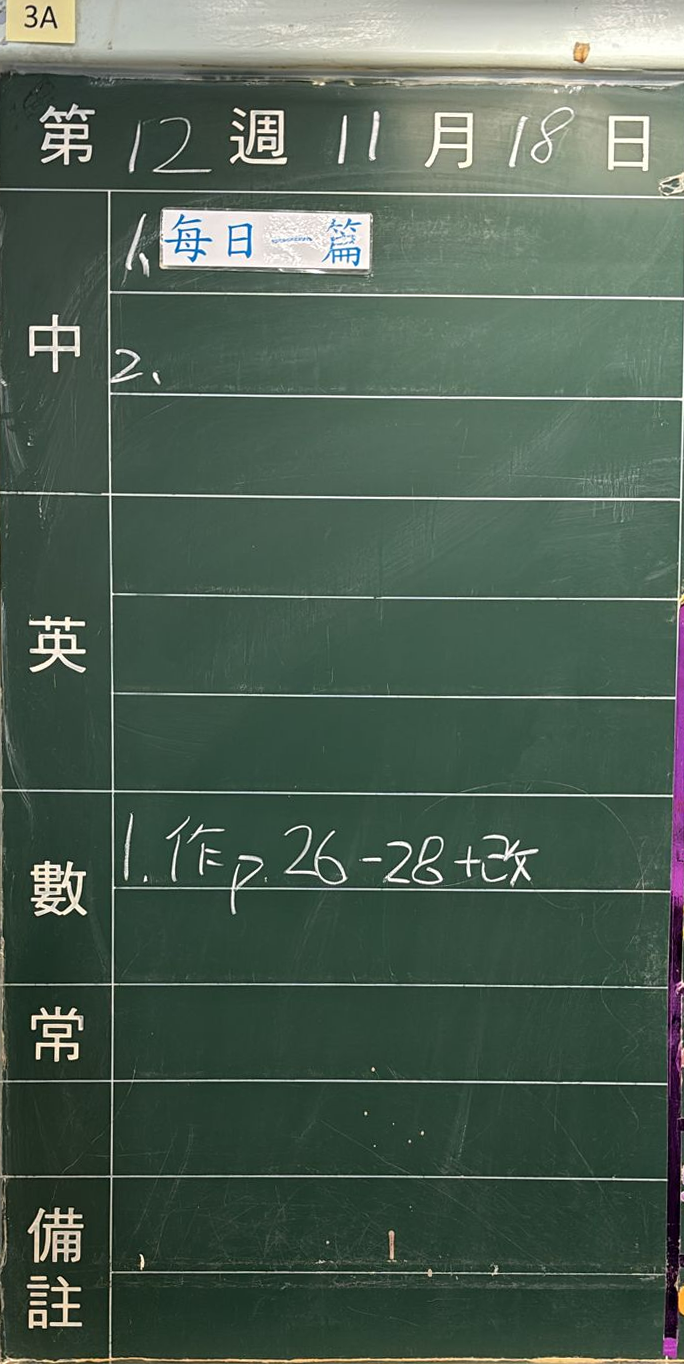 3A
第 12 週 11 月 18 日
中
1、每日一篇
2、
英
數
1. 作 p. 26-28+改
常
備註